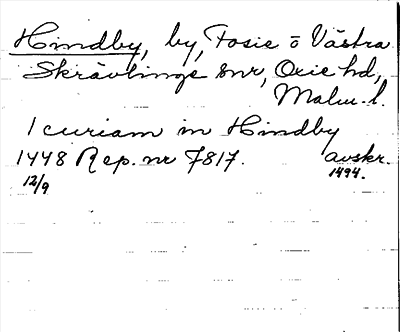 Hindby, by, Fosie o Västra
Skrävlinge snr, Oxie hd,
Malm. l.
1 curiam in Hindby
1448 Rep. nr 7817. avskr.
12/9 1494.